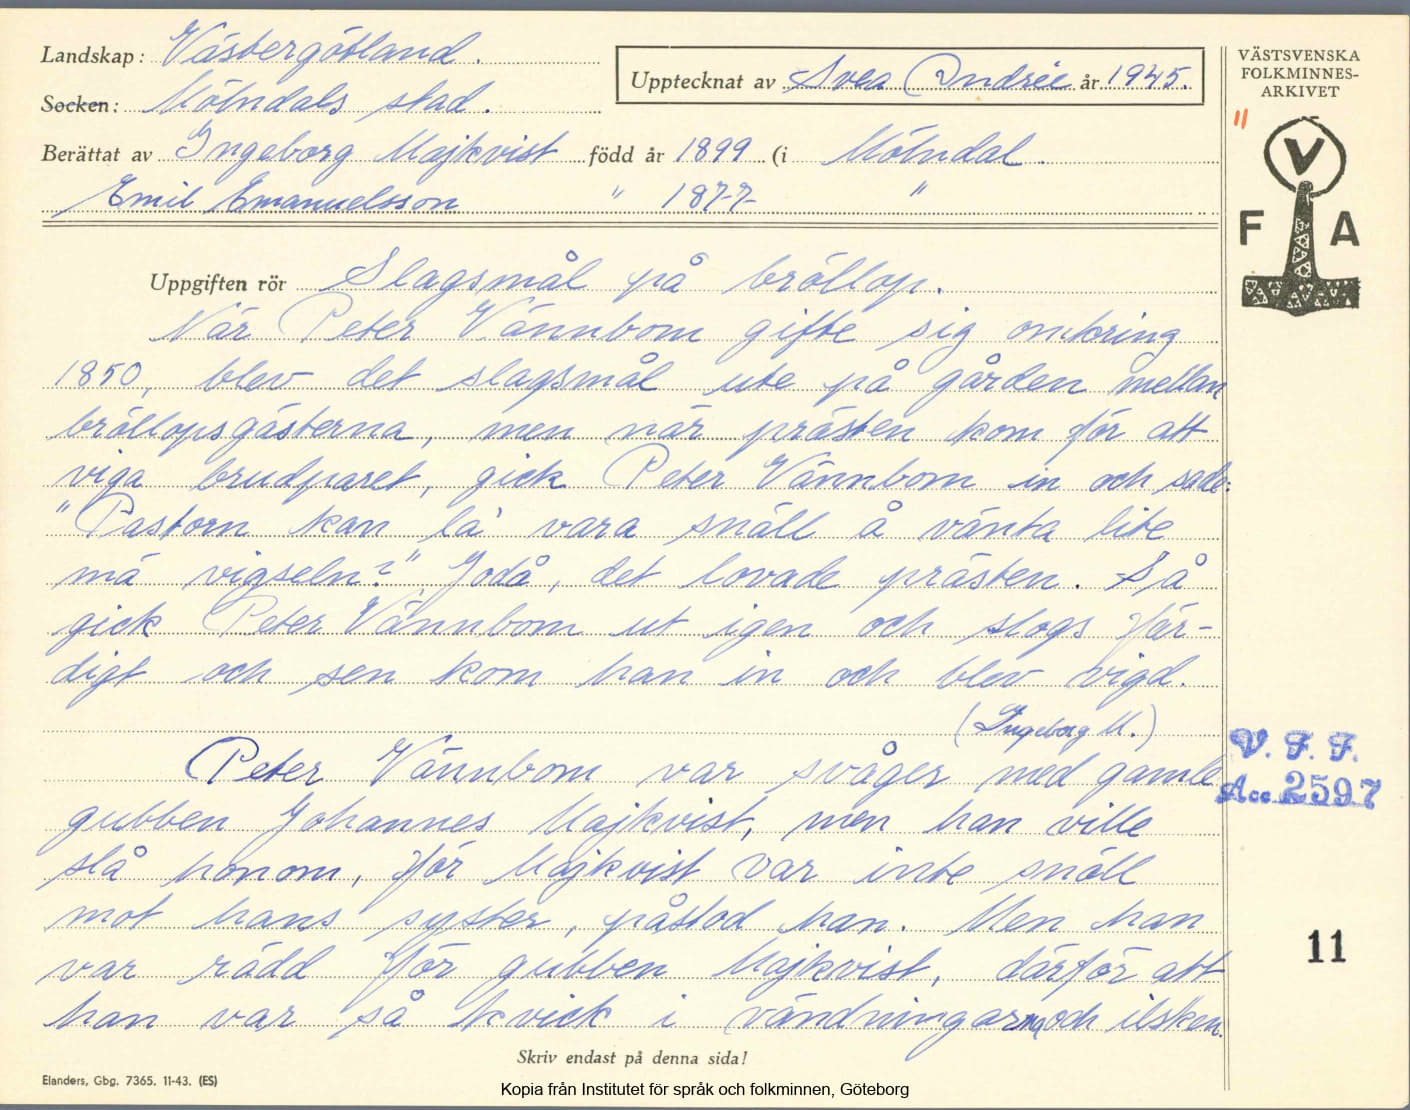 Landskap: Västergötland.
Socken: Mölndals stad.
Upptecknat av Svea Andrée år 1945.
Berättat av Ingeborg Majkvist född år 1899 (i Mölndal.
Emil Emanuelsson " 1877 "
VÄSTSVENSKA
FOLKMINNES-
ARKIVET
"
V
F A
Uppgiften rör Slagsmål på bröllop.
När Peter Vännbom gifte sig omkring
1850, blev det slagsmål ute på gården mellan
bröllopsgästerna, men när prästen kom för att
viga brudparet, gick Peter Vännbom in och sade:
"Pastorn kan la' vara snäll å vänta lite
mä vigseln?" Jodå, det lovade prästen. Så
gick Peter Vännbom ut igen och slogs fär-
digt och sen kom han in och blev vigd.
(Ingeborg M.)
Peter Vännbom var svåger med gamle
gubben Johannes Majkvist, men han ville
slå honom, för Majkvist var inte snäll
mot hans syster, påstod han. Men han
var rädd för gubben Majkvist, därför att
han var så kvick i vändningarna och ilsken.
V. F. F.
Acc. 2597
11
Skriv endast på denna sida!
Elanders, Gbg. 7365. 11-43. (ES)
Kopia från Institutet för språk och folkminnen, Göteborg